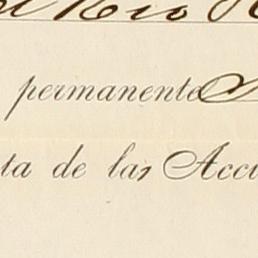 el Rio
permanente
ta de las Acci